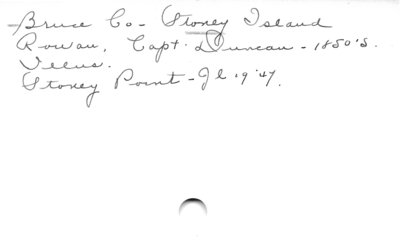 Bruce Co - Stoney Island
Rowan, Capt. Duncan - 1850's.
Illus.
Stoney Point - Jl 19 '47.